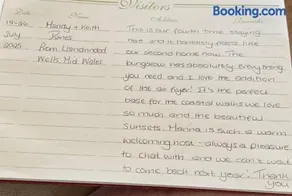 Booking.com
Visitors
Date Name Address Remarks
19-26 Mandy + Keith
July Jones
2025 from Llandrindod
Wells Mid Wales
This is our fourth time staying
here and it honestly feels like
our second home now. The
bungalow has absolutely everything
you need and I love the addition
of the air fryer! It's the perfect
base for the coastal walks we love
so much and the beautiful
Sunsets. Marina is such a warm
welcoming host - always a pleasure
to chat with and we can't wait
to come back next year! Thank
you